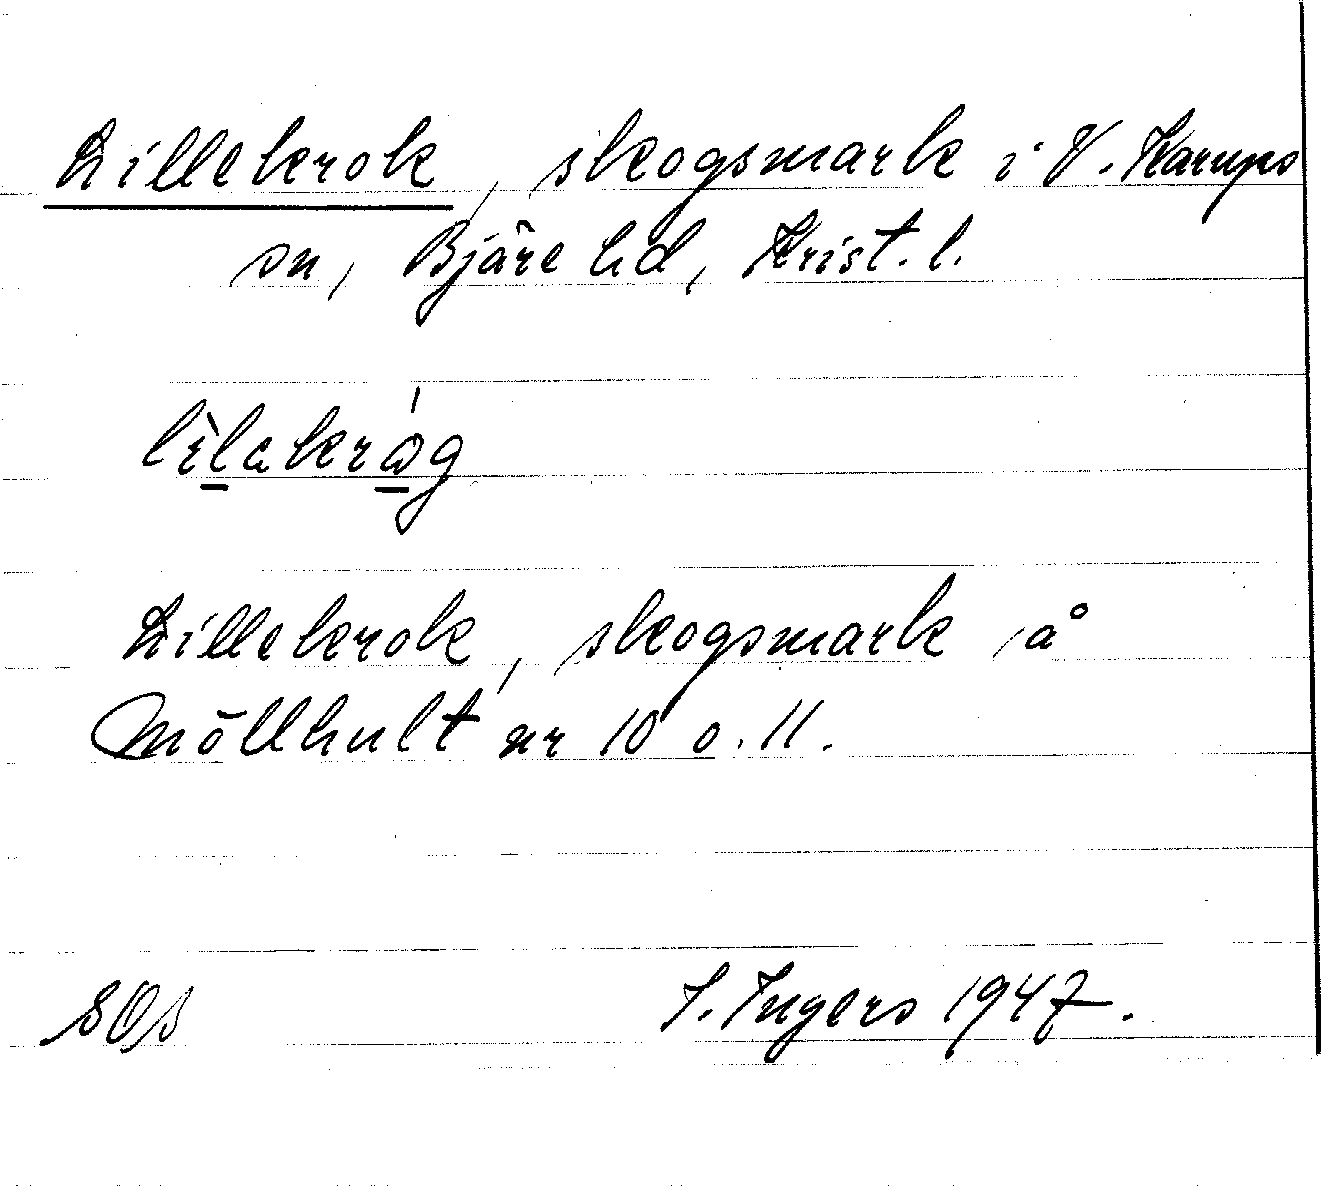 Lillekrok, skogsmark i V. Karups
sn, Bjäre hd, Krist. l.
Lillekrok, skogsmark å
Möllhult nr 10 o. 11.
SOs I. Ingers 1947.